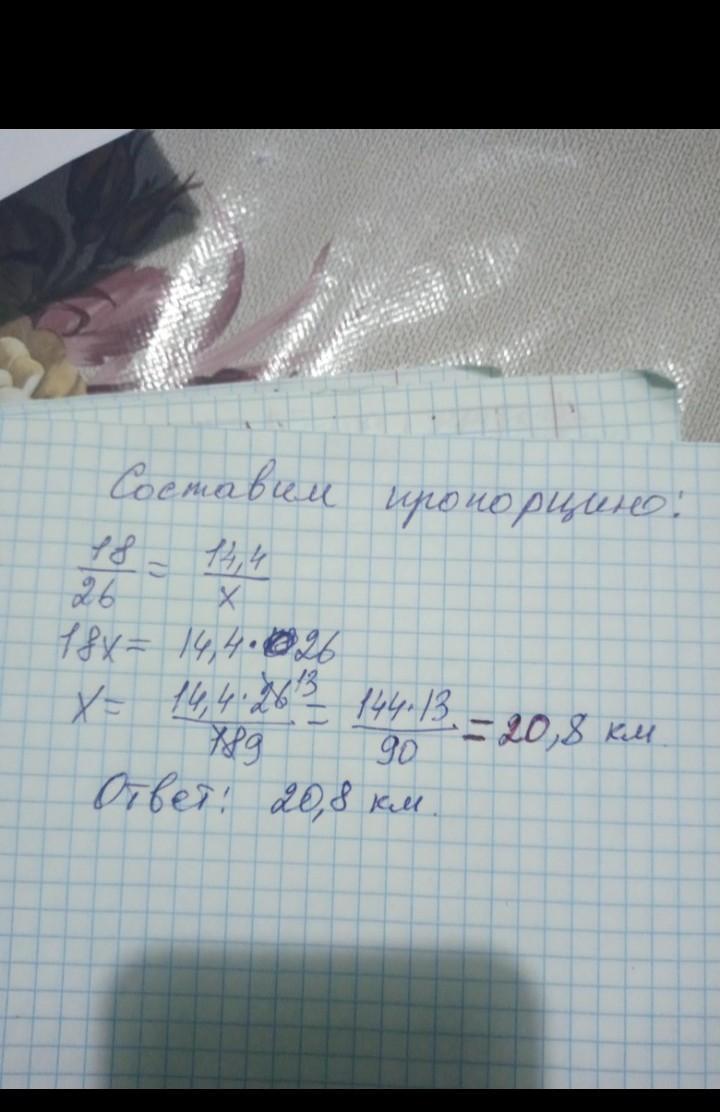 Составим пропорцию:
18/26 = 14,4/x
18x = 14,4 · 26
x = 14,4 · 26 13 / 18 9 = 144 · 13 / 90 = 20,8 км.
Ответ: 20,8 км.